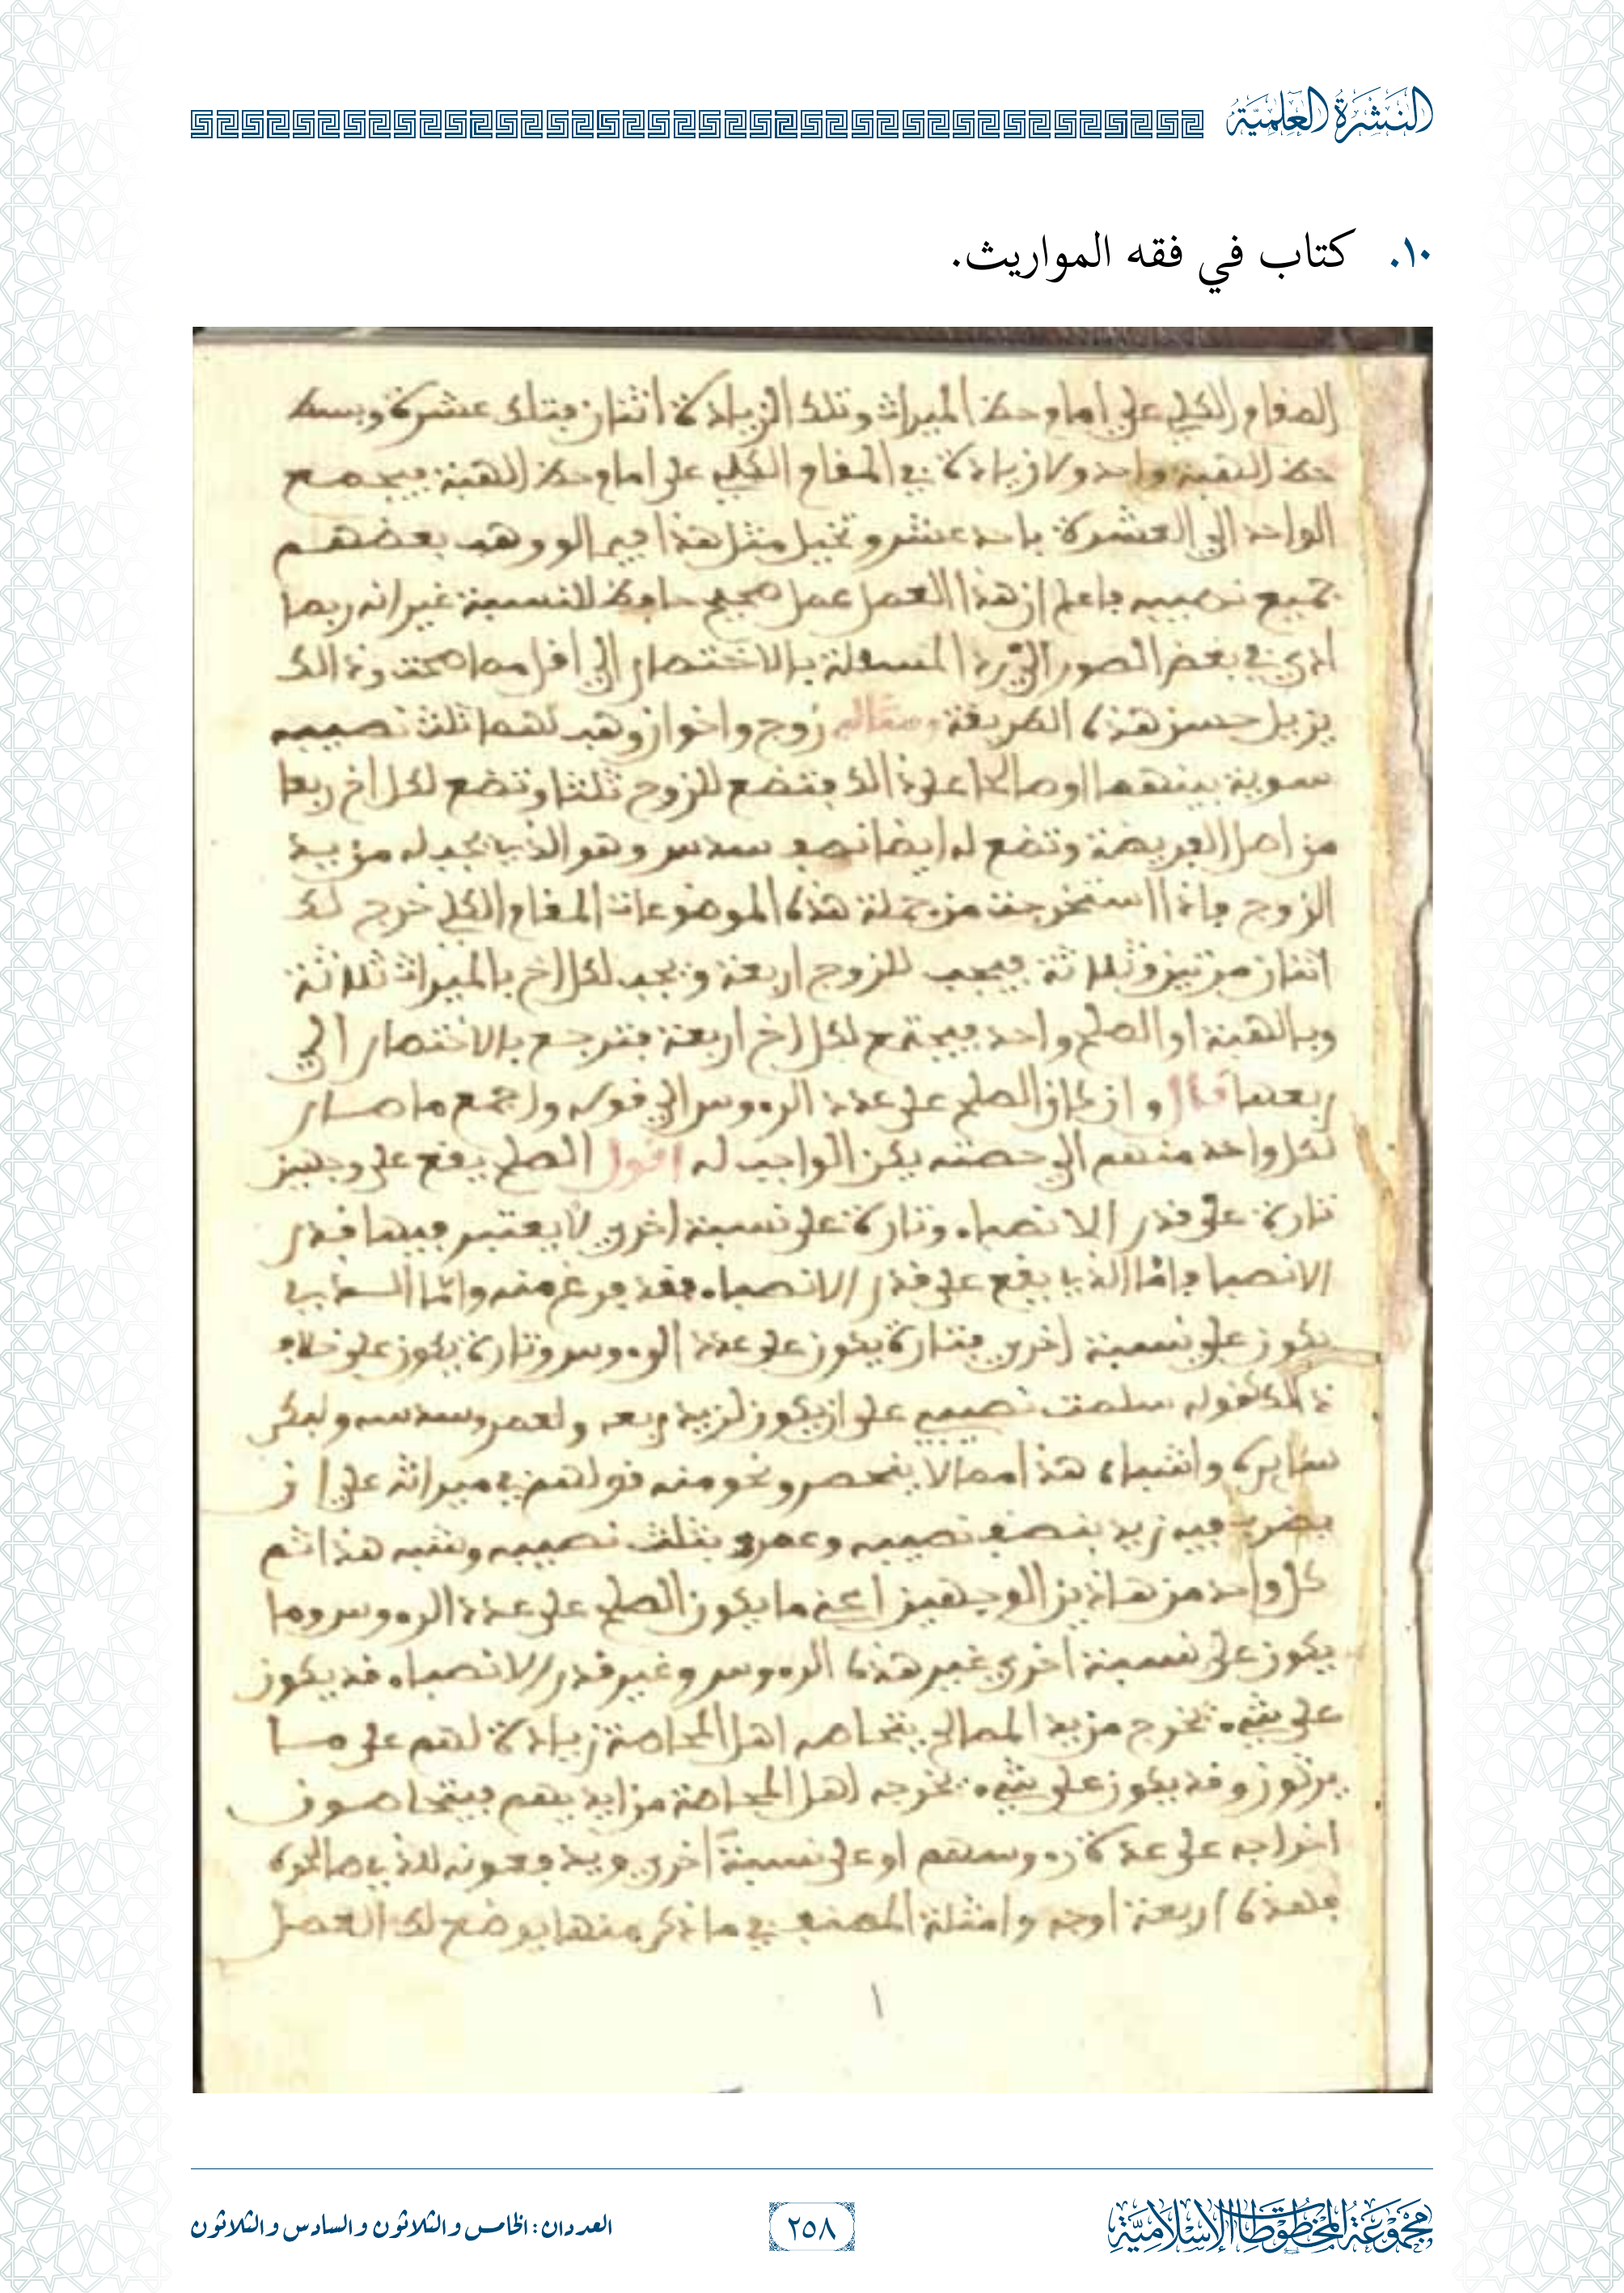 النشرة العلمية
١٠. كتاب في فقه المواريث.
المقام الكلي على امام حظ الميراث وتلك الزيادة اثنان فتلك عشرة وبسط
حظ الهبة واحد ولا زيادة في المقام الكلي على امام حظ الهبة فيجمع
الواحد الى العشرة باحد عشر وتخيل مثل هذا فيه لو وهب بعضهم
جميع نصيبه فاعلم ان هذا العمل عمل صحيح حافظ للنسبة غير انه ربما
ادى في بعض الصور الى رد المسئلة بالاختصار الى اقل مما صحت وذالك
يزيل حسن هذه الطريقة ومثاله زوج واخوان وهب لهما ثلث نصيبه
سوية بينهما او صالحا على ذالك فتضع للزوج ثلثا وتضع لكل اخ ربعا
من اصل الفريضة وتضع له ايضا نصف سدس وهو الذي يجب له من يد
الزوج فاذا استخرجت من جملة هذه الموضوعات المقام الكلي خرج لك
اثنان مرتين وثلاثة فيجب للزوج اربعة ويجب لكل اخ بالميراث ثلاثة
وبالهبة او الصلح واحد فيجتمع لكل اخ اربعة فترجع بالاختصار الى
ربعها قال وان كان الصلح على عدد الرءوس الى قوله واجمع ما صار
لكل واحد منهم الى حصته يكن الواجب له اقول الصلح يقع على وجهين
تارة على قدر الانصباء وتارة على نسبة اخرى لا يعتبر فيها قدر
الانصبا فاما الذي يقع على قدر الانصباء فقد فرغ منه واما الذي
يكون على نسبة اخرى فتارة يكون على عدد الرءوس وتارة يكون على خلاف
ذلك كقوله سلمت نصيبي على ان يكون لزيد ربعه ولعمرو سدسه ولبكر
سايره واشباه هذا مما لا ينحصر ونحو منه قولهم في ميراثه على ان
يضرب فيه زيد بنصف نصيبه وعمرو بثلث نصيبه وشبه هذا ثم
كل واحد من هاذين الوجهين اعني ما يكون الصلح على عدد الرءوس وما
يكون على نسبة اخرى غير هذه الرءوس وغير قدر الانصباء قد يكون
على شيء يخرج من يد المصالح يتحاصه اهل المحاصة زيادة لهم على ما
يرثون وقد يكون على شيء يخرجه اهل المحاصة من ايديهم فيتحاصون
اخراجه على عدة رءوسهم او على نسبة اخرى ويدفعونه للذي صالحوه
فهذه اربعة اوجه وامثلة المصنف في ما ذكر منها يوضح لك العمل
مجموعة المخطوطات الإسلامية
٢٥٨
العددان: الخامس والثلاثون والسادس والثلاثون